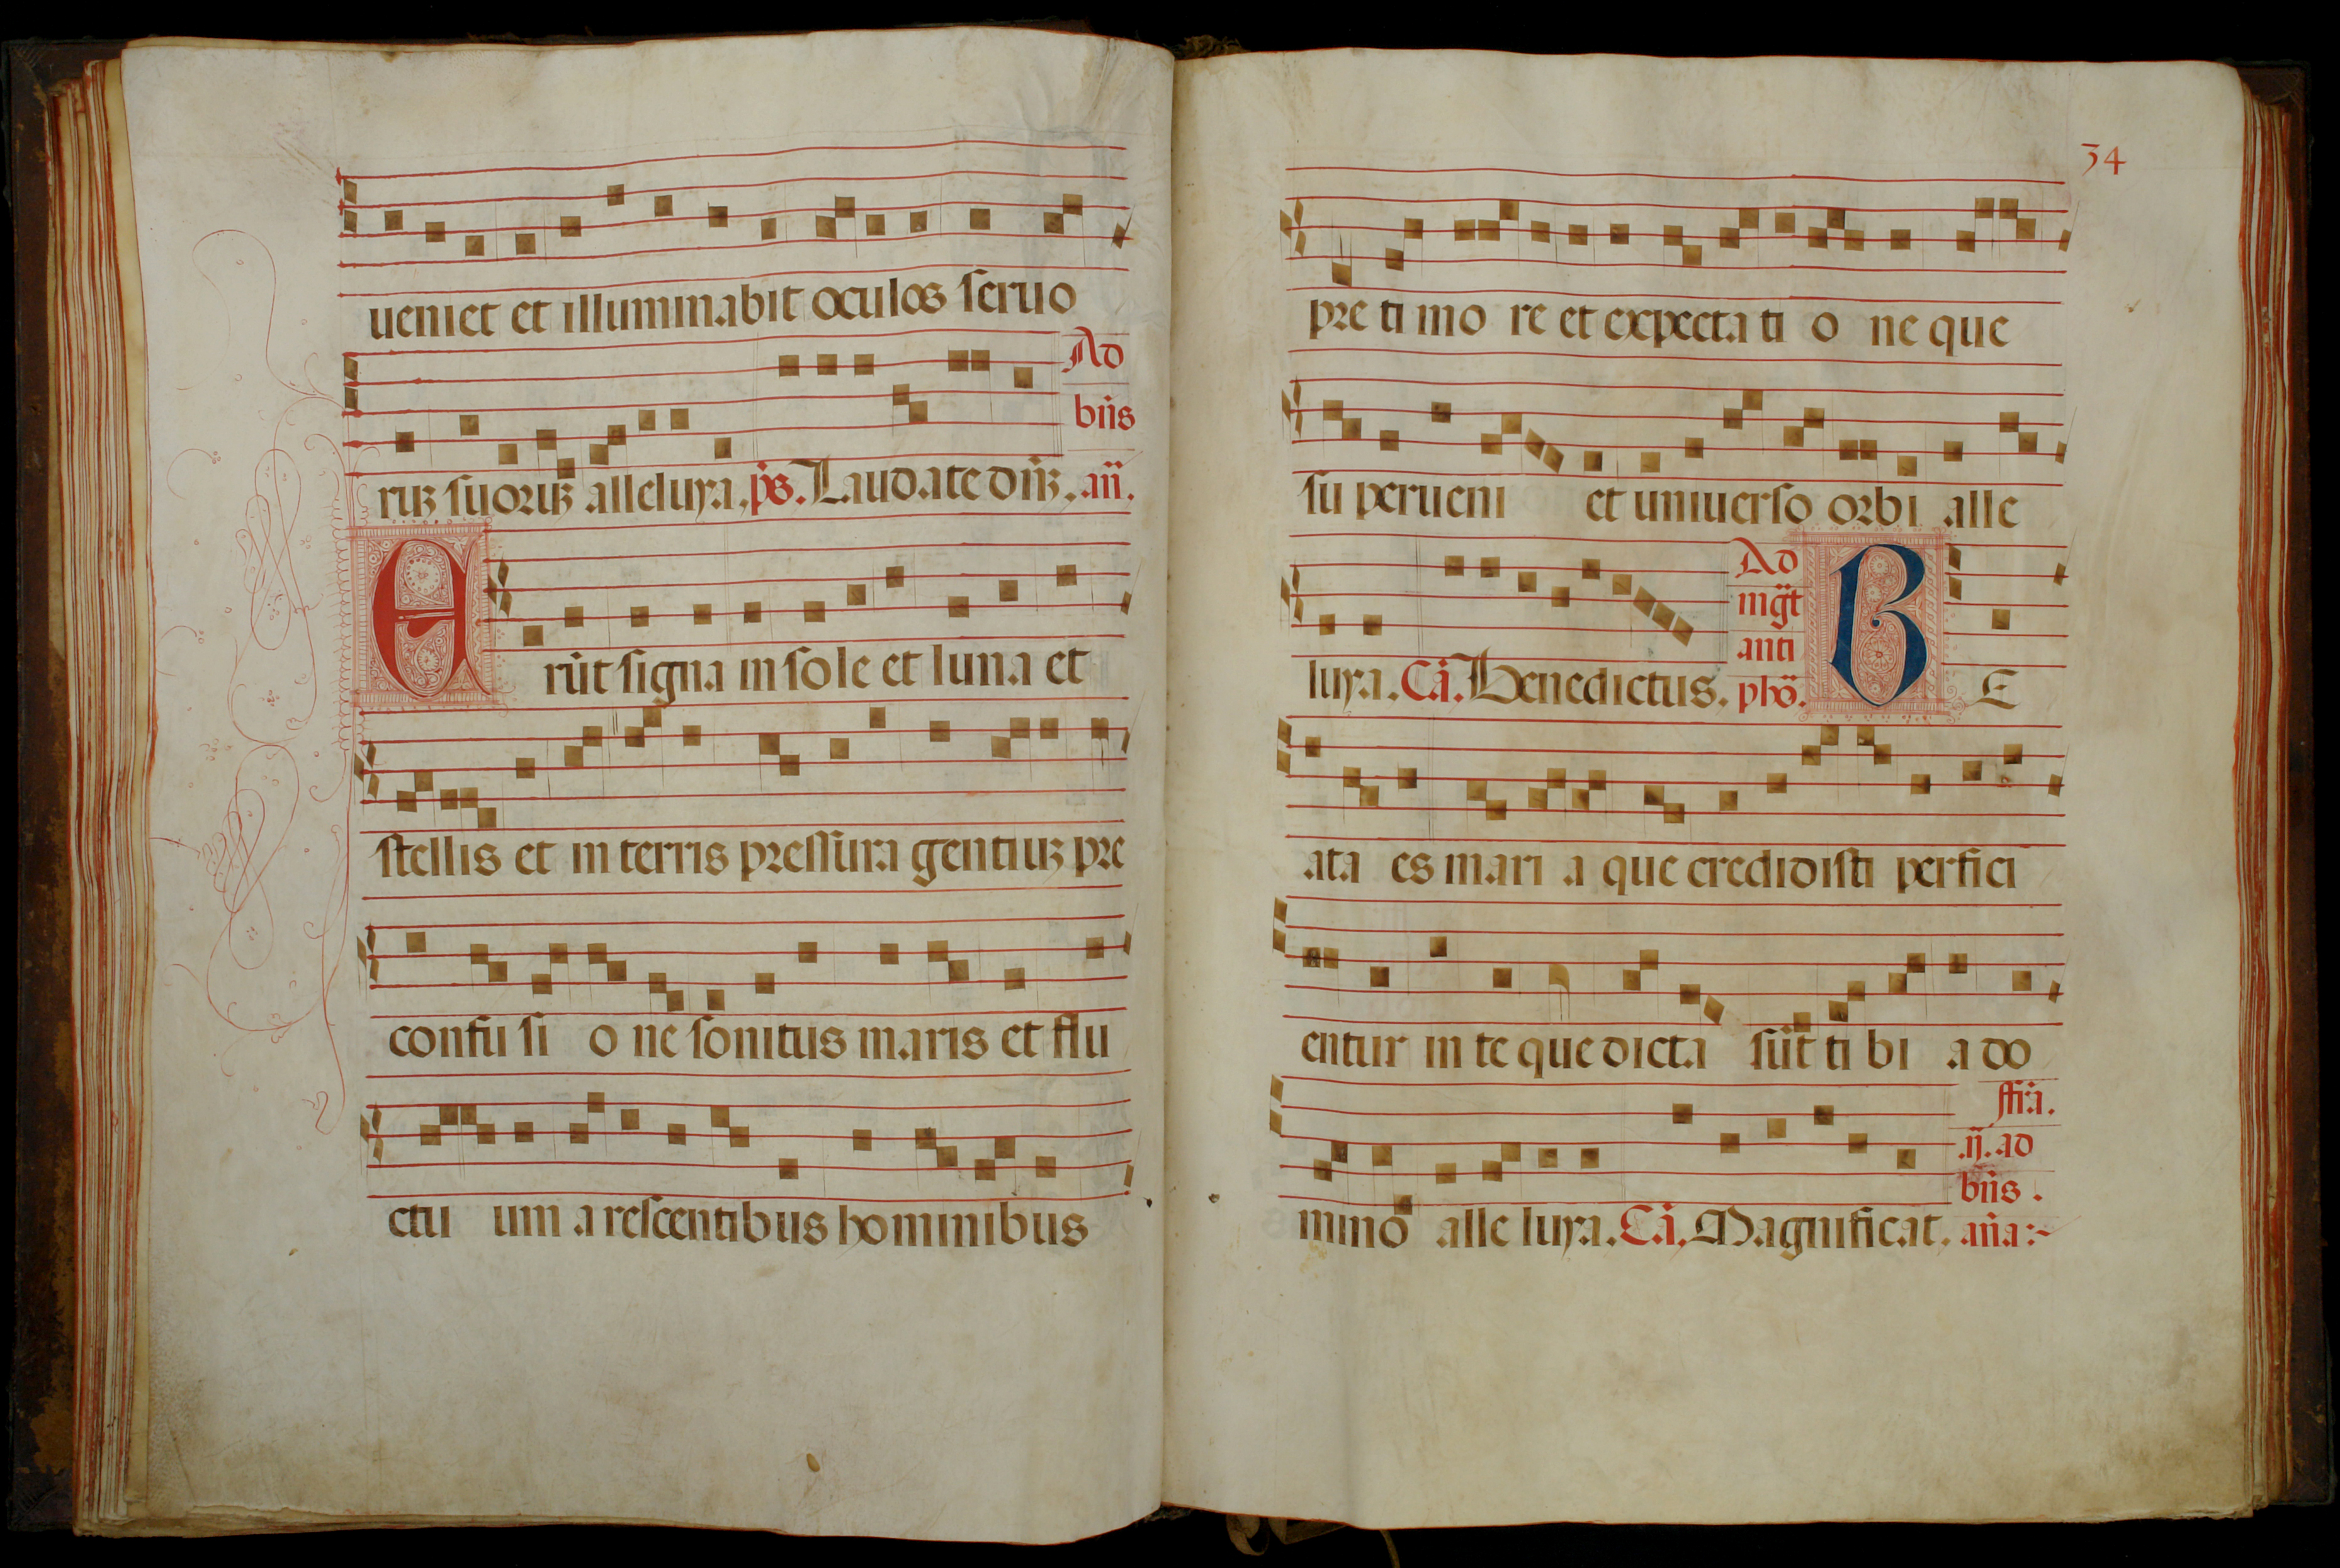 ueniet et illuminabit oculos seruo
Ad
bn̄s
ruꝫ suoruꝫ alleluya. ps̄. Laudate dn̄ꝫ. an̄.
E rūt signa in sole et luna et
stellis et in terris pressura gentiuꝫ pre
confu si o ne sonitus maris et flu
ctu um a rescentibus hominibus
34
pre ti mo re et expecta ti o ne que
su perueni et uniuerso orbi alle
Ad
mḡt
anti
luya. Cā. Benedictus. phō. B E
ata es mari a que credidisti perfici
entur in te que dicta sūt ti bi a do
.ij. ad
bn̄s.
mino alle luya. Cā. Magnificat. an̄a:~